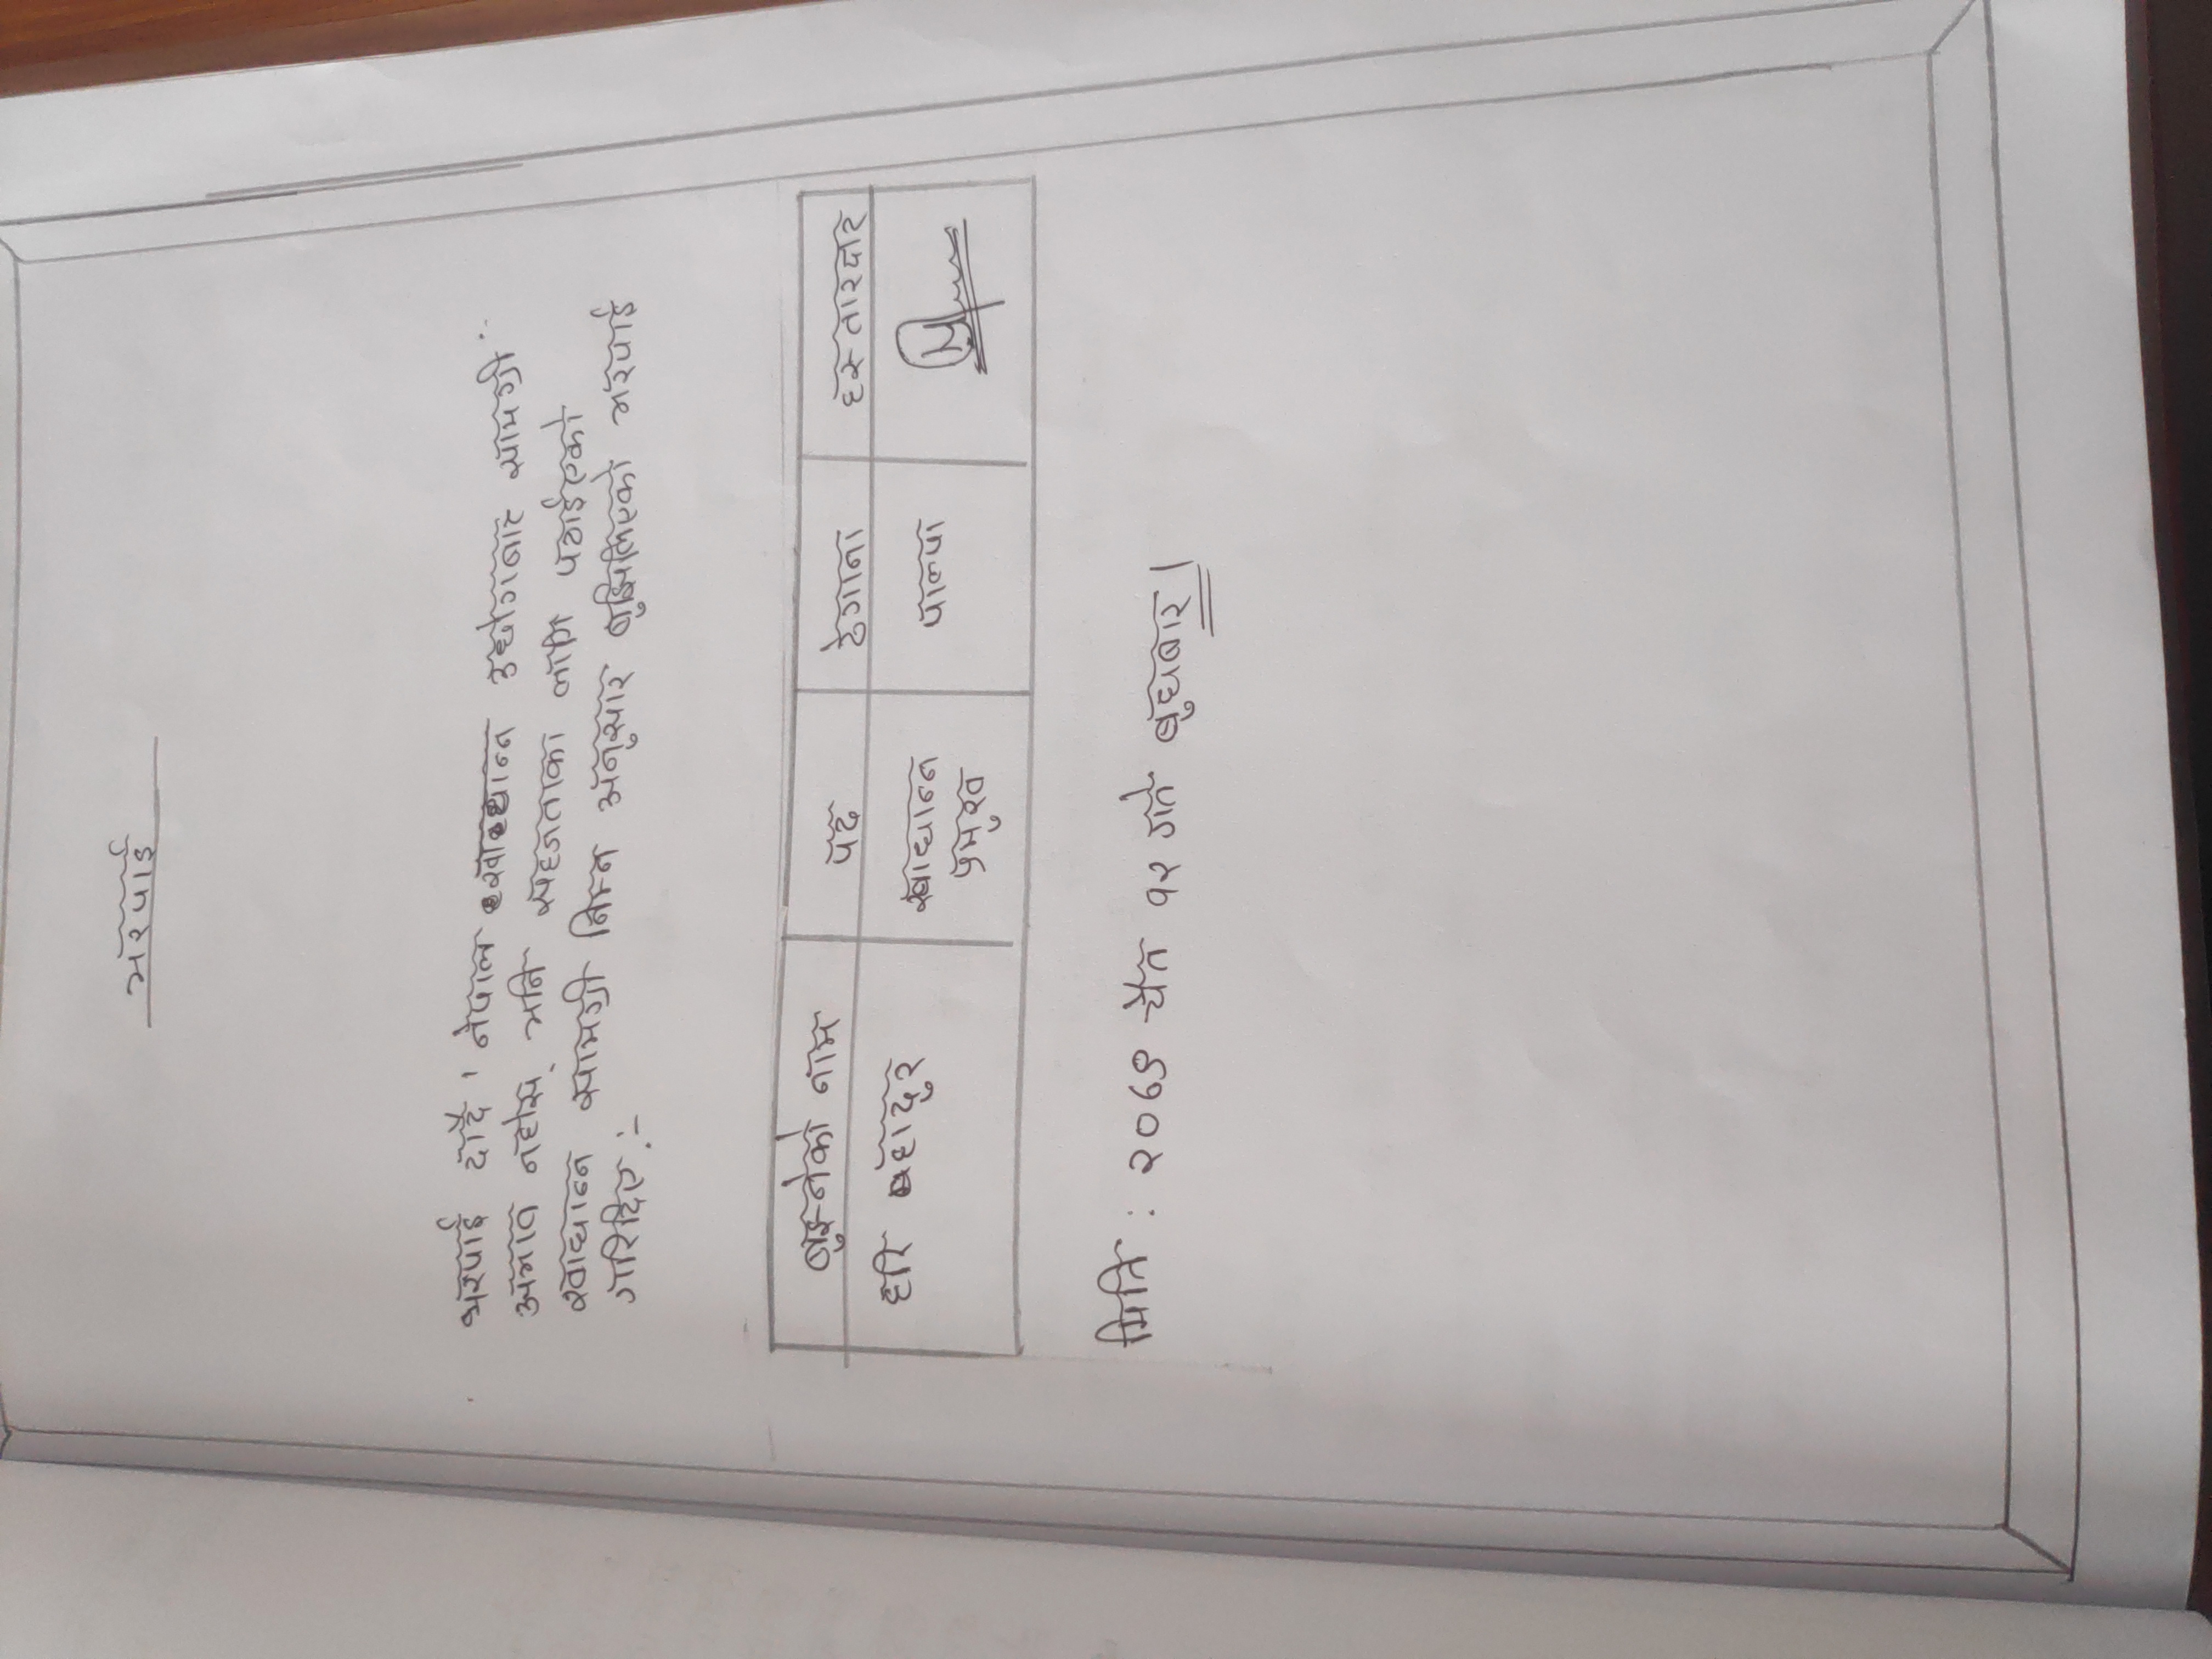 भरपाई
भरपाई दाँदै ' नेपाल खाद्यान्न उद्योगबाट सामग्री
अभाव नहोस् भनि सहजताका लागि पठाईएको
खाद्यान्न सामग्री निम्न अनुसार बुझिलिएको भरपाई
गरिदिए :-
बुझ्नेको नाम पद ठेगाना हस्तारदार
हरि बहादुर खाद्यान्न पाल्पा
प्रमुख
मिति : २०७९ चैत १२ गते बुधबार।